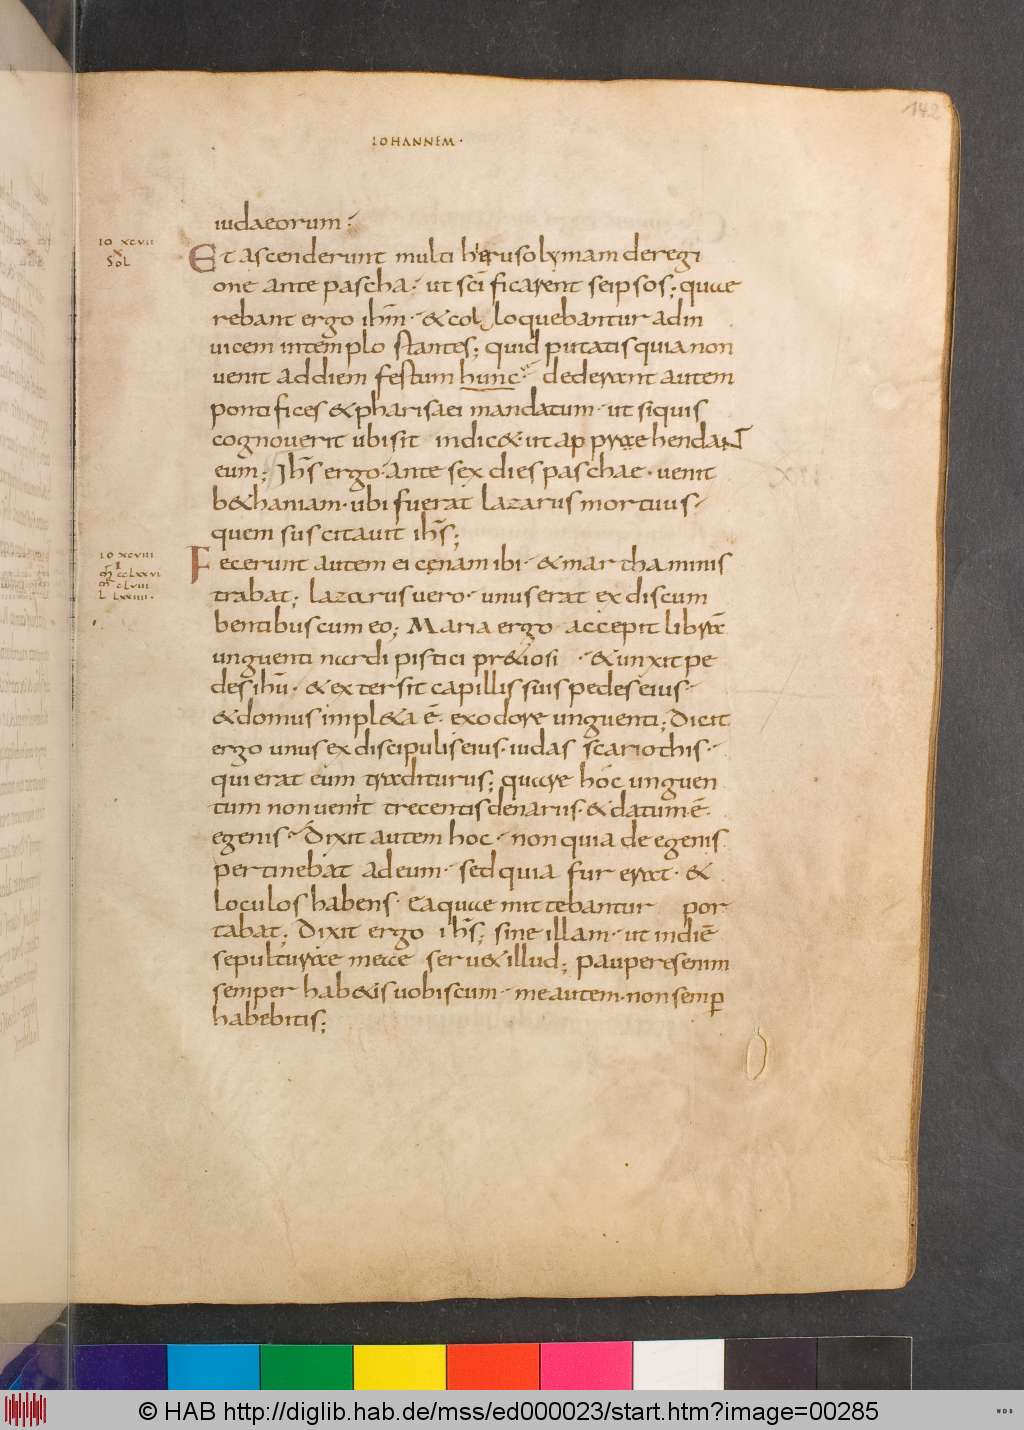 142
IOHANNEM·
iudaeorum·
IO XCVII
X
SOL
Et ascenderunt multi hierusolymam de regi
one ante pascha· ut sci ficarent seipsos; quae
rebant ergo ihm· & col loquebantur ad in
uicem in templo stantes; quid putatis quia non
uenit ad diem festum hunc· dederant autem
pontifices & pharisaei mandatum· ut siquis
cognouerit ubi sit indic&· ut ap prae hendant
eum; Ihs ergo· ante sex dies paschae· uenit
b&haniam· ubi fuerat lazarus mortuus·
quem suscitauit ihs;
IO XCVIII
I
M CCLXXVI
M CLVIII
L LXXIIII·
Fecerunt autem ei cenam ibi· & martha minis
trabat; lazarus uero· unus erat ex discum
bentibus cum eo; Maria ergo accepit librā
unguenti nardi pistici pr&iosi · & unxit pe
des ihu· & extersit capillis suis pedes eius·
& domus impl&a ē· ex odore unguenti; Dicit
ergo unus ex discipulis eius· iudas scariothis·
qui erat eum traditurus; quare hoc unguen
tum non uenit trecentis denarus· & datum· ē·
egenis· Dixit autem hoc· non quia de egenis
pertinebat ad eum· sed quia fur erat· &
loculos habens· ea quae mittebantur por
tabat; Dixit ergo ihs; sine illam· ut in diē
sepulturae meae seru& illud; pauperes enim
semper hab&is uobiscum· me autem· non semp
habebitis;
© HAB http://diglib.hab.de/mss/ed000023/start.htm?image=00285
WDB